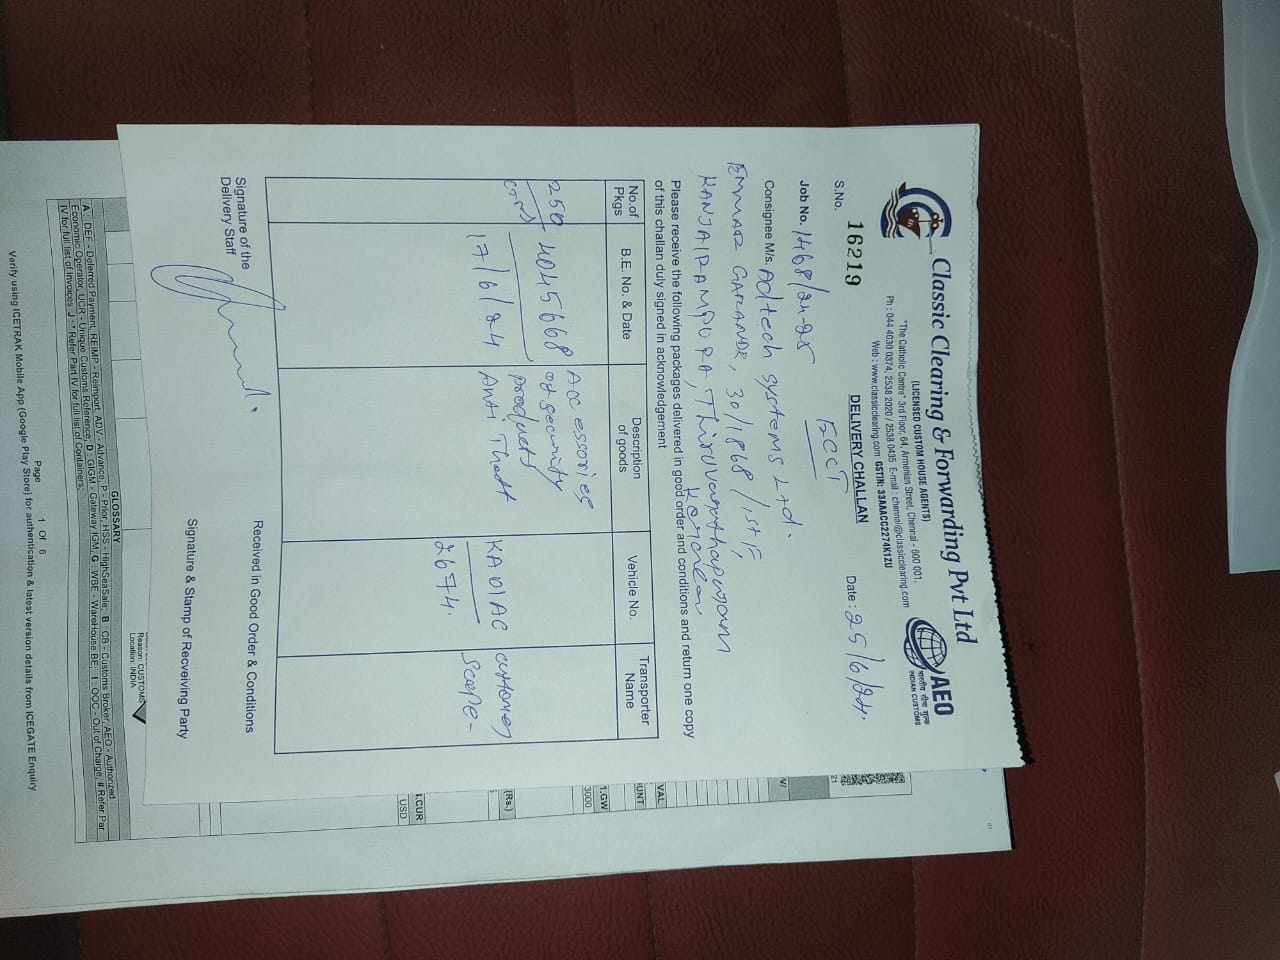 Classic Clearing & Forwarding Pvt Ltd
(LICENSED CUSTOM HOUSE AGENTS)
"The Catholic Centre" 3rd Floor, 64, Armenian Street, Chennai - 600 001.
Ph : 044 4030 0374, 2538 2020 / 2538 0435 E-mail : chennai@classicclearing.com
Web : www.classicclearing.com GSTIN: 33AAACC2274K1ZU
AEO
भारतीय सीमा शुल्क
INDIAN CUSTOMS
S.No. 16219
DELIVERY CHALLAN
Date : 25/6/24.
Job No. 1468/24-25
FCCT
Consignee M/s. Adtech Systems Ltd.
EMMAR GARANDE, 30/1868/1st F,
KANJAIRAMPURA, Thiruvananthapuram
Kerala
Please receive the following packages delivered in good order and conditions and return one copy
of this challan duly signed in acknowledgement
No.of Pkgs
B.E. No. & Date
Description of goods
Vehicle No.
Transporter Name
250
4045668
17/6/24
Accessories
of security
products
Anti Theft
KA01AC
2674.
customer
scope-
Signature of the
Delivery Staff
Received in Good Order & Conditions
Signature & Stamp of Recveiving Party
21
V/
VAL
UNT
1.GW
3000
(Rs.)
1.CUR
USD
Reason: CUSTOMS
Location: INDIA
GLOSSARY
A : DEF - Deferred Payment, REIMP - Reimport, ADV - Advance, P - Prior, HSS - HighSeaSale, B : CB - Customs Broker, AEO - Authorized
Economic Operator, UCR - Unique Customs Reference; D : GIGM - Gateway IGM; G : WBE - WareHouse BE; I : OOC - Out of Charge, # Refer Par
IV for full list of Invoices J : * Refer Part IV for full list of Containers;
Page 1 Of 6
Verify using ICETRAK Mobile App (Google Play Store) for authentication & latest version details from ICEGATE Enquiry